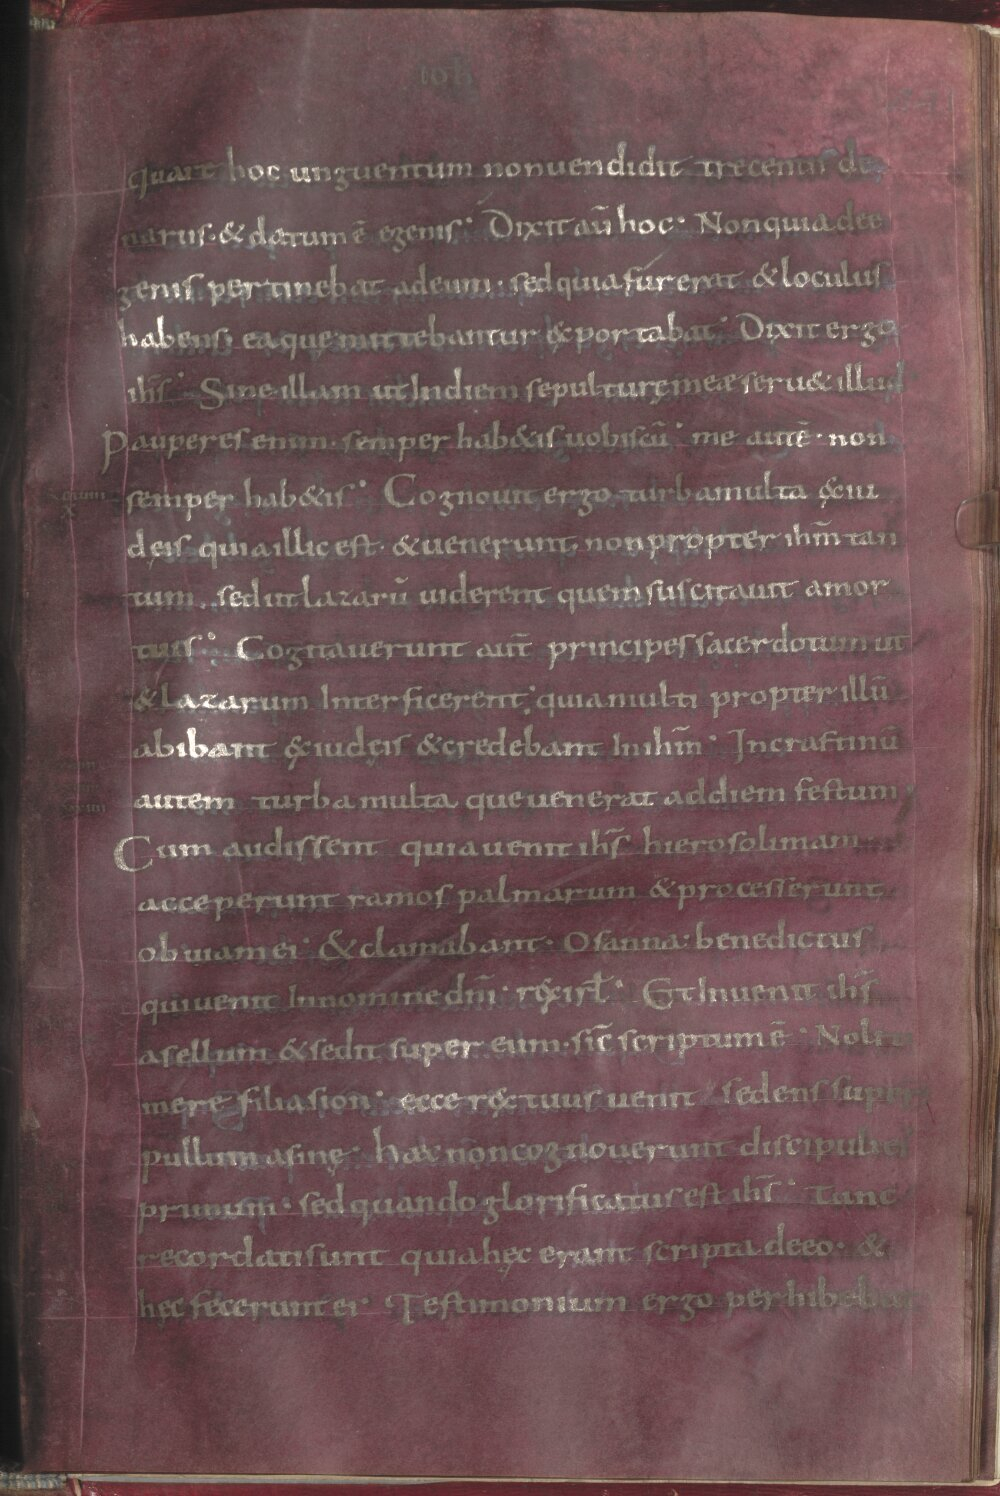 ioh
quare hoc unguentum non uendidit trecentis de
nariis · & datum ē egenis · Dixit aū hoc · Non quia de e
genis pertinebat ad eum · sed quia fur erat & loculus
habens · ea quę mittebantur & portabat · Dixit ergo
ih̄s · Sine illam ut In diem sepulturę meæ seru& illud
Pauperes enim · semper hab&is uobiscū · me autē · non
semper hab&is · Cognouit ergo turba multa ex iu
dęis quia illic est · & uenerunt, non propter ihm̄ tan
tum, sed ut lazarū uiderent quem suscitauit a mor
tuis · Cogitauerunt aut̄ principes sacerdotum ut
& lazarum Interficerent · quia multi propter illū
abibant ex iudęis & credebant In ihm̄ · In crastinū
autem turba multa que uenerat ad diem festum,
Cum audissent quia uenit ih̄s hierosolimam
acceperunt ramos palmarum & processerunt
obuiam ei · & clamabant · Osanna · benedictus
qui uenit In nomine dm̄i · rex isrł · Et Inuenit ih̄s
asellum & sedit super eum · sic̄ scriptum ē · Noli ti
mere filia sion · ecce rex tuus uenit sedens super
pullum asinę · Hæc non cognouerunt discipuli ei
primum · sed quando glorificatus est ih̄s · Tunc
recordati sunt quia hęc erant scripta de eo · &
hęc fecerunt ei · Testimonium ergo perhibebat